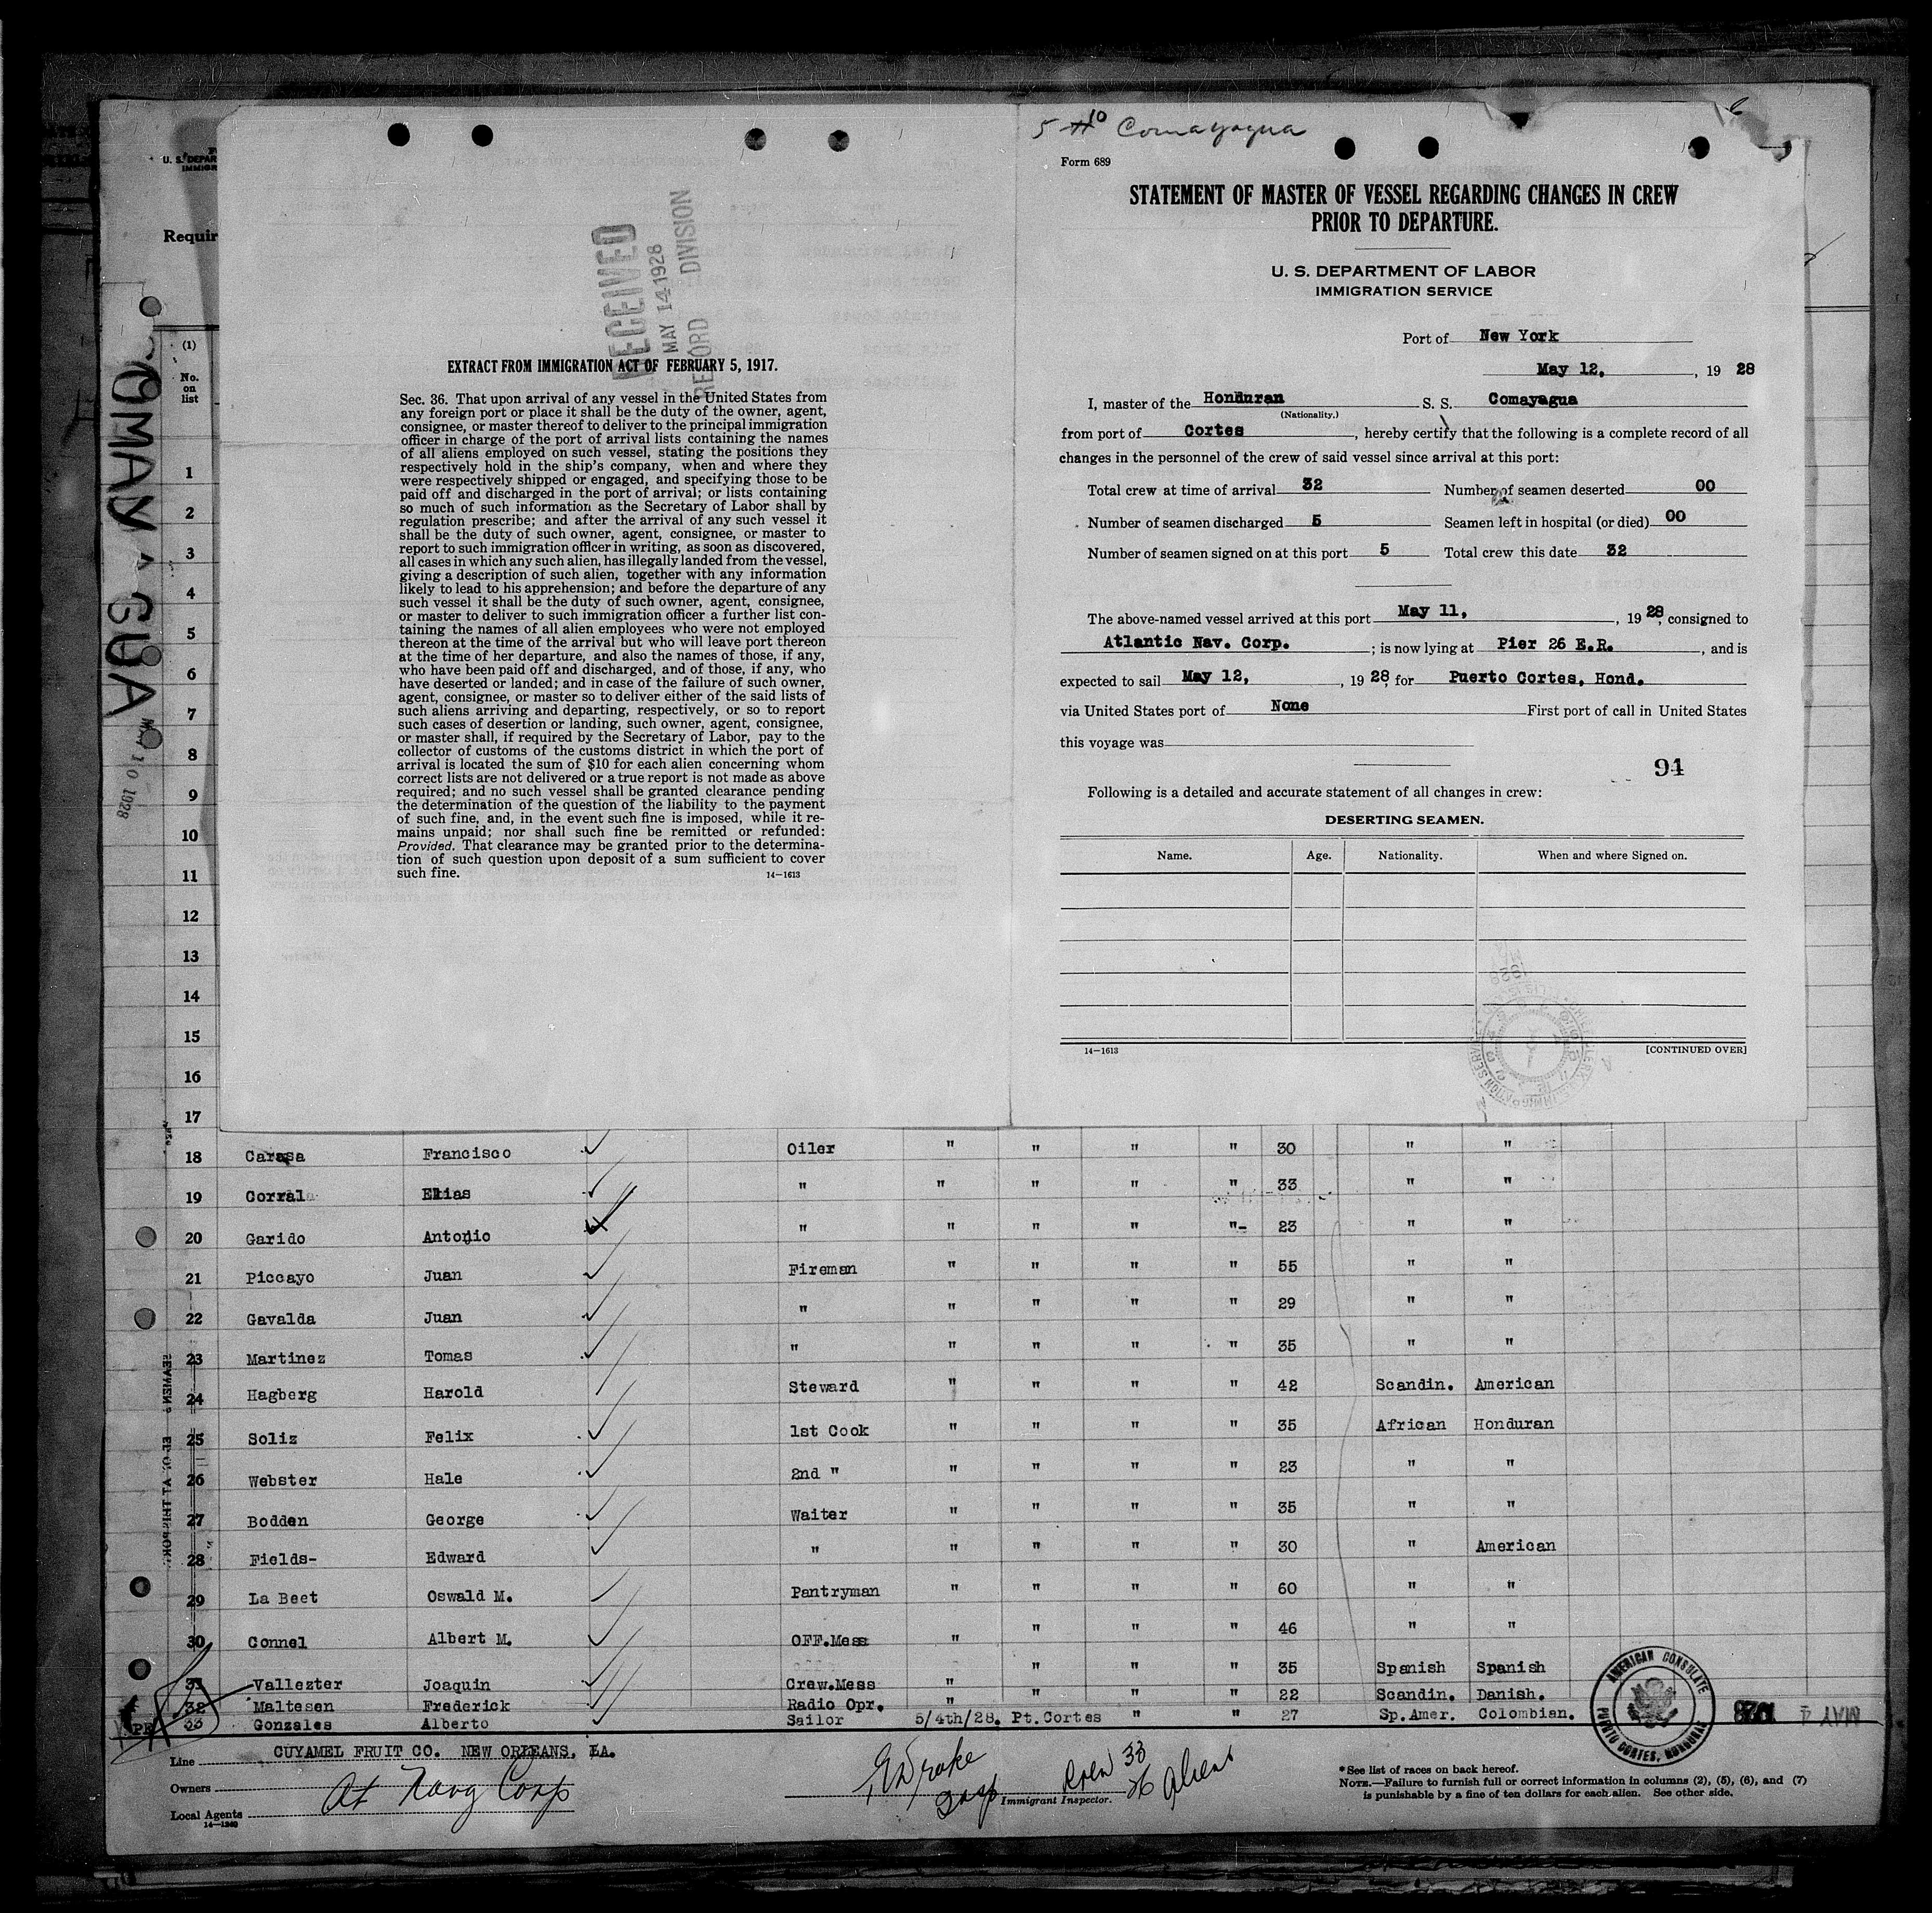 5 10 Comayagua
Form 689
STATEMENT OF MASTER OF VESSEL REGARDING CHANGES IN CREW
PRIOR TO DEPARTURE.
U. S. DEPARTMENT OF LABOR
IMMIGRATION SERVICE
Port of New York
May 12, , 19 28
I, master of the Honduran S. S. Comayagua
(Nationality.)
from port of Cortes , hereby certify that the following is a complete record of all
changes in the personnel of the crew of said vessel since arrival at this port:
Total crew at time of arrival 32 Number of seamen deserted 00
Number of seamen discharged 5 Seamen left in hospital (or died) 00
Number of seamen signed on at this port 5 Total crew this date 32
The above-named vessel arrived at this port May 11, , 19 28, consigned to
Atlantic Nav. Corp. ; is now lying at Pier 26 E.R. , and is
expected to sail May 12, , 19 28, for Puerto Cortes, Hond.
via United States port of None First port of call in United States
this voyage was
94
Following is a detailed and accurate statement of all changes in crew:
DESERTING SEAMEN.
Name. Age. Nationality. When and where Signed on.
14—1613 [CONTINUED OVER]
RECEIVED
MAY 14 1928
RECORD DIVISION
EXTRACT FROM IMMIGRATION ACT OF FEBRUARY 5, 1917.
Sec. 36. That upon arrival of any vessel in the United States from
any foreign port or place it shall be the duty of the owner, agent,
consignee, or master thereof to deliver to the principal immigration
officer in charge of the port of arrival lists containing the names
of all aliens employed on such vessel, stating the positions they
respectively hold in the ship's company, when and where they
were respectively shipped or engaged, and specifying those to be
paid off and discharged in the port of arrival; or lists containing
so much of such information as the Secretary of Labor shall by
regulation prescribe; and after the arrival of any such vessel it
shall be the duty of such owner, agent, consignee, or master to
report to such immigration officer in writing, as soon as discovered,
all cases in which any such alien, has illegally landed from the vessel,
giving a description of such alien, together with any information
likely to lead to his apprehension; and before the departure of any
such vessel it shall be the duty of such owner, agent, consignee,
or master to deliver to such immigration officer a further list con-
taining the names of all alien employees who were not employed
thereon at the time of the arrival but who will leave port thereon
at the time of her departure, and also the names of those, if any,
who have been paid off and discharged, and of those, if any, who
have deserted or landed; and in case of the failure of such owner,
agent, consignee, or master so to deliver either of the said lists of
such aliens arriving and departing, respectively, or so to report
such cases of desertion or landing, such owner, agent, consignee,
or master shall, if required by the Secretary of Labor, pay to the
collector of customs of the customs district in which the port of
arrival is located the sum of $10 for each alien concerning whom
correct lists are not delivered or a true report is not made as above
required; and no such vessel shall be granted clearance pending
the determination of the question of the liability to the payment
of such fine, and, in the event such fine is imposed, while it re-
mains unpaid; nor shall such fine be remitted or refunded:
Provided. That clearance may be granted prior to the determina-
tion of such question upon deposit of a sum sufficient to cover
such fine. 14—1613
U. S. DEPAR
IMMIGR
Requir
COMAYAGUA
MAY 10 1928
(1)
No.
on
list
1
2
3
4
5
6
7
8
9
10
11
12
13
14
15
16
17
18 Carasa Francisco Oiler " " " " 30 " "
19 Corral Elias " " " " " 33 " "
20 Garido Antonio " " " " "- 23 " "
21 Piccayo Juan Fireman " " " " 55 " "
22 Gavalda Juan " " " " " 29 " "
23 Martinez Tomas " " " " " 35 " "
24 Hagberg Harold Steward " " " " 42 Scandin. American
25 Soliz Felix 1st Cook " " " " 35 African Honduran
26 Webster Hale 2nd " " " " " 23 " "
27 Bodden George Waiter " " " " 35 " "
28 Fields- Edward " " " " " 30 " American
29 La Beet Oswald M. Pantryman " " " " 60 " "
30 Connel Albert M. OFF.Mess " " " " 46 " "
31 Vallezter Joaquin Crew.Mess " " " " 35 Spanish Spanish
32 Maltesen Frederick Radio Opr. " " " " 22 Scandin. Danish.
33 Gonzales Alberto Sailor 5/4th/28. Pt.Cortes " " 27 Sp.Amer. Colombian.
Line CUYAMEL FRUIT CO. NEW ORLEANS, LA.
Owners At Navg Corp
Local Agents
14—1240
Drake
Insp
Immigrant Inspector.
Crew 33
26 Aliens
AMERICAN CONSULATE
PUERTO CORTES, HONDURAS
MAY 4 1928
*See list of races on back hereof.
NOTE.—Failure to furnish full or correct information in columns (2), (5), (6), and (7)
is punishable by a fine of ten dollars for each alien. See other side.